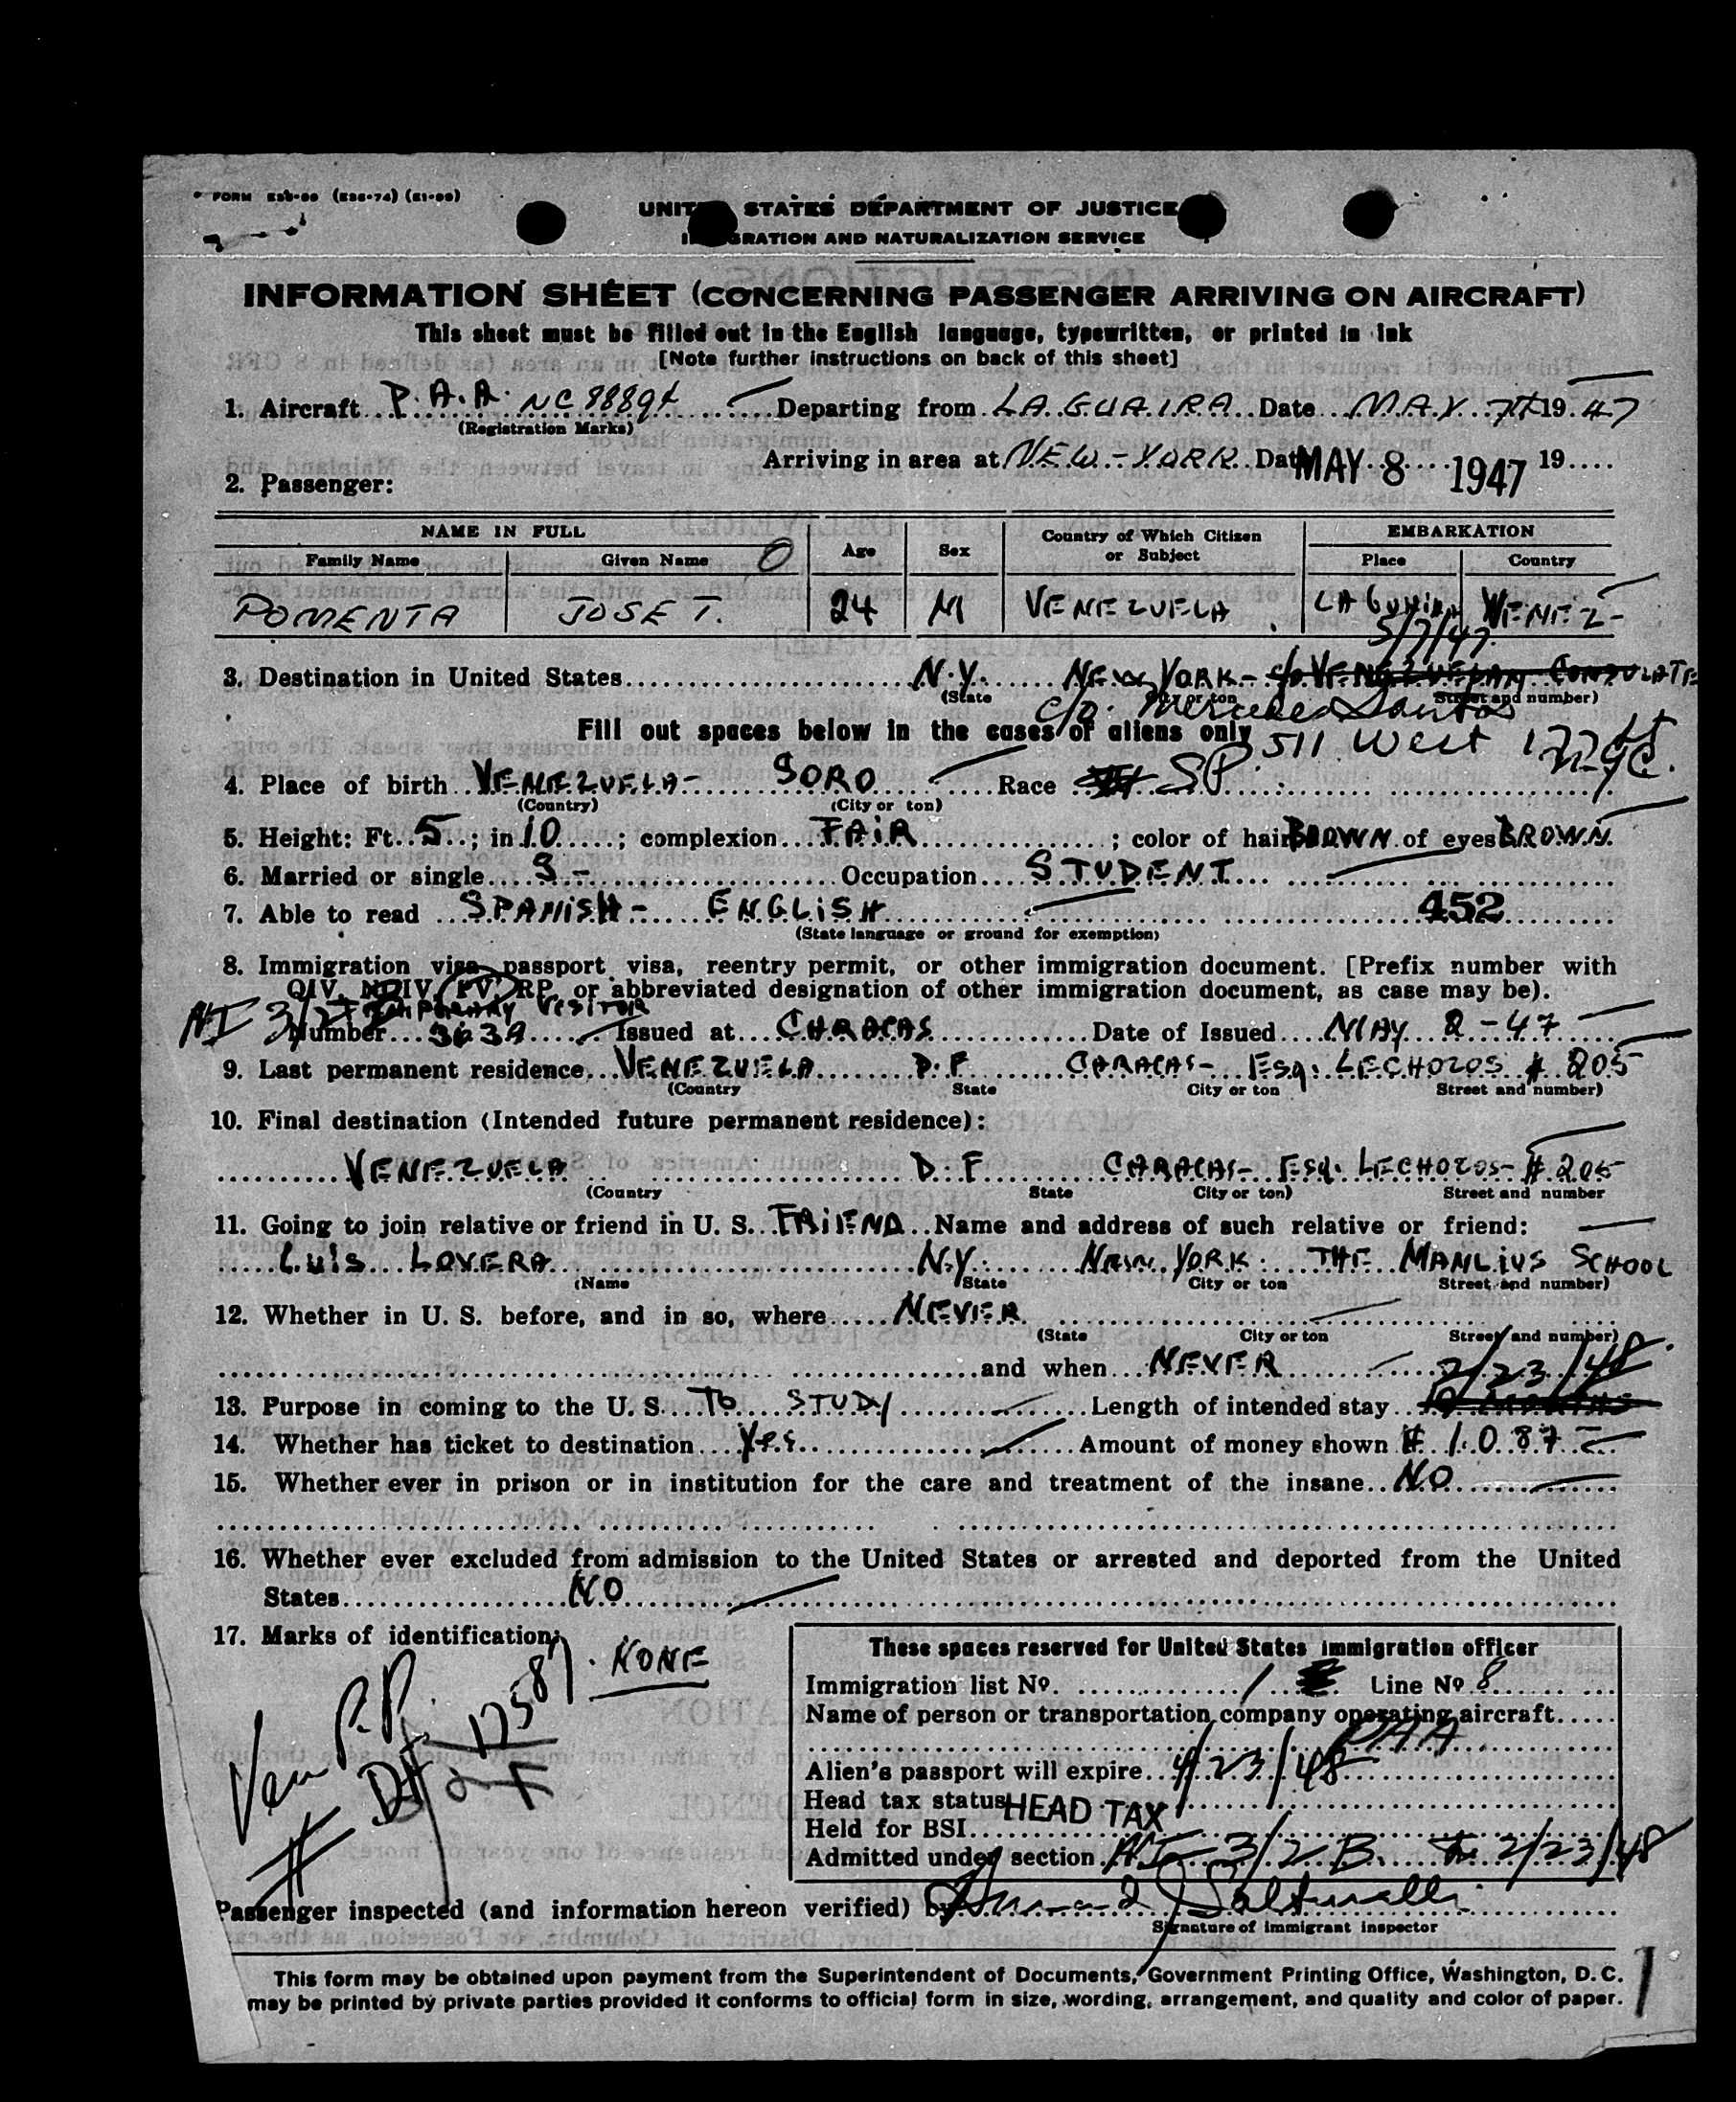 UNITED STATES DEPARTMENT OF JUSTICE
IMMIGRATION AND NATURALIZATION SERVICE
INFORMATION SHEET (CONCERNING PASSENGER ARRIVING ON AIRCRAFT)
This sheet must be filled out in the English language, typewritten, or printed in ink
[Note further instructions on back of this sheet]
1. Aircraft P.A.A. NC 88894 Departing from LA GUAIRA Date MAY 7th 19 47
(Registration Marks)
Arriving in area at NEW-YORK Date MAY 8 1947 19....
2. Passenger:
NAME IN FULL Age Sex Country of Which Citizen or Subject EMBARKATION
Family Name Given Name Place Country
POMENTA JOSE T. 24 M VENEZUELA LA GUAIRA VENEZ-
5/7/47
3. Destination in United States N.Y. NEW YORK - c/o VENEZUELAN CONSULATE
(State City or ton Street and number)
c/o. Mercedes Santos
Fill out spaces below in the cases of aliens only 511 West
NYC.
4. Place of birth VENEZUELA- SORO Race SP.
(Country) (City or ton)
5. Height: Ft. 5 ; in 10 ; complexion FAIR ; color of hair BROWN of eyes BROWN.
6. Married or single S- Occupation STUDENT
7. Able to read SPANISH- ENGLISH 452
(State language or ground for exemption)
8. Immigration visa passport visa, reentry permit, or other immigration document. [Prefix number with
QIV, NQIV, PV, RP, or abbreviated designation of other immigration document, as case may be).
NI 3/2 TEMPORARY VISITOR
Number 3639 Issued at CARACAS Date of Issued MAY 2-47
9. Last permanent residence VENEZUELA D.F CARACAS- Esq. LECHOZOS # 205
(Country State City or ton Street and number)
10. Final destination (Intended future permanent residence):
VENEZUELA D.F CARACAS- Esq. LECHOZOS- # 205
(Country State City or ton) Street and number
11. Going to join relative or friend in U. S. FRIEND Name and address of such relative or friend:
LUIS LOVERA N.Y. NEW YORK. THE MANLIUS SCHOOL
(Name State City or ton Street and number)
12. Whether in U. S. before, and in so, where NEVER
(State City or ton Street and number)
and when NEVER 2/23/48
13. Purpose in coming to the U. S. TO STUDY Length of intended stay
14. Whether has ticket to destination Yes Amount of money shown $ 1.087
15. Whether ever in prison or in institution for the care and treatment of the insane NO
16. Whether ever excluded from admission to the United States or arrested and deported from the United
States NO
17. Marks of identification: NONE
Ven P.P.
# 12587
These spaces reserved for United States immigration officer
Immigration list No. 1 Line No 8
Name of person or transportation company operating aircraft
PAA
Alien's passport will expire 4/23/48
Head tax status HEAD TAX
Held for BSI
Admitted under section NI 3/2 B. to 2/23/48
Passenger inspected (and information hereon verified) by
Signature of immigrant inspector
This form may be obtained upon payment from the Superintendent of Documents, Government Printing Office, Washington, D. C.
may be printed by private parties provided it conforms to official form in size, wording, arrangement, and quality and color of paper.